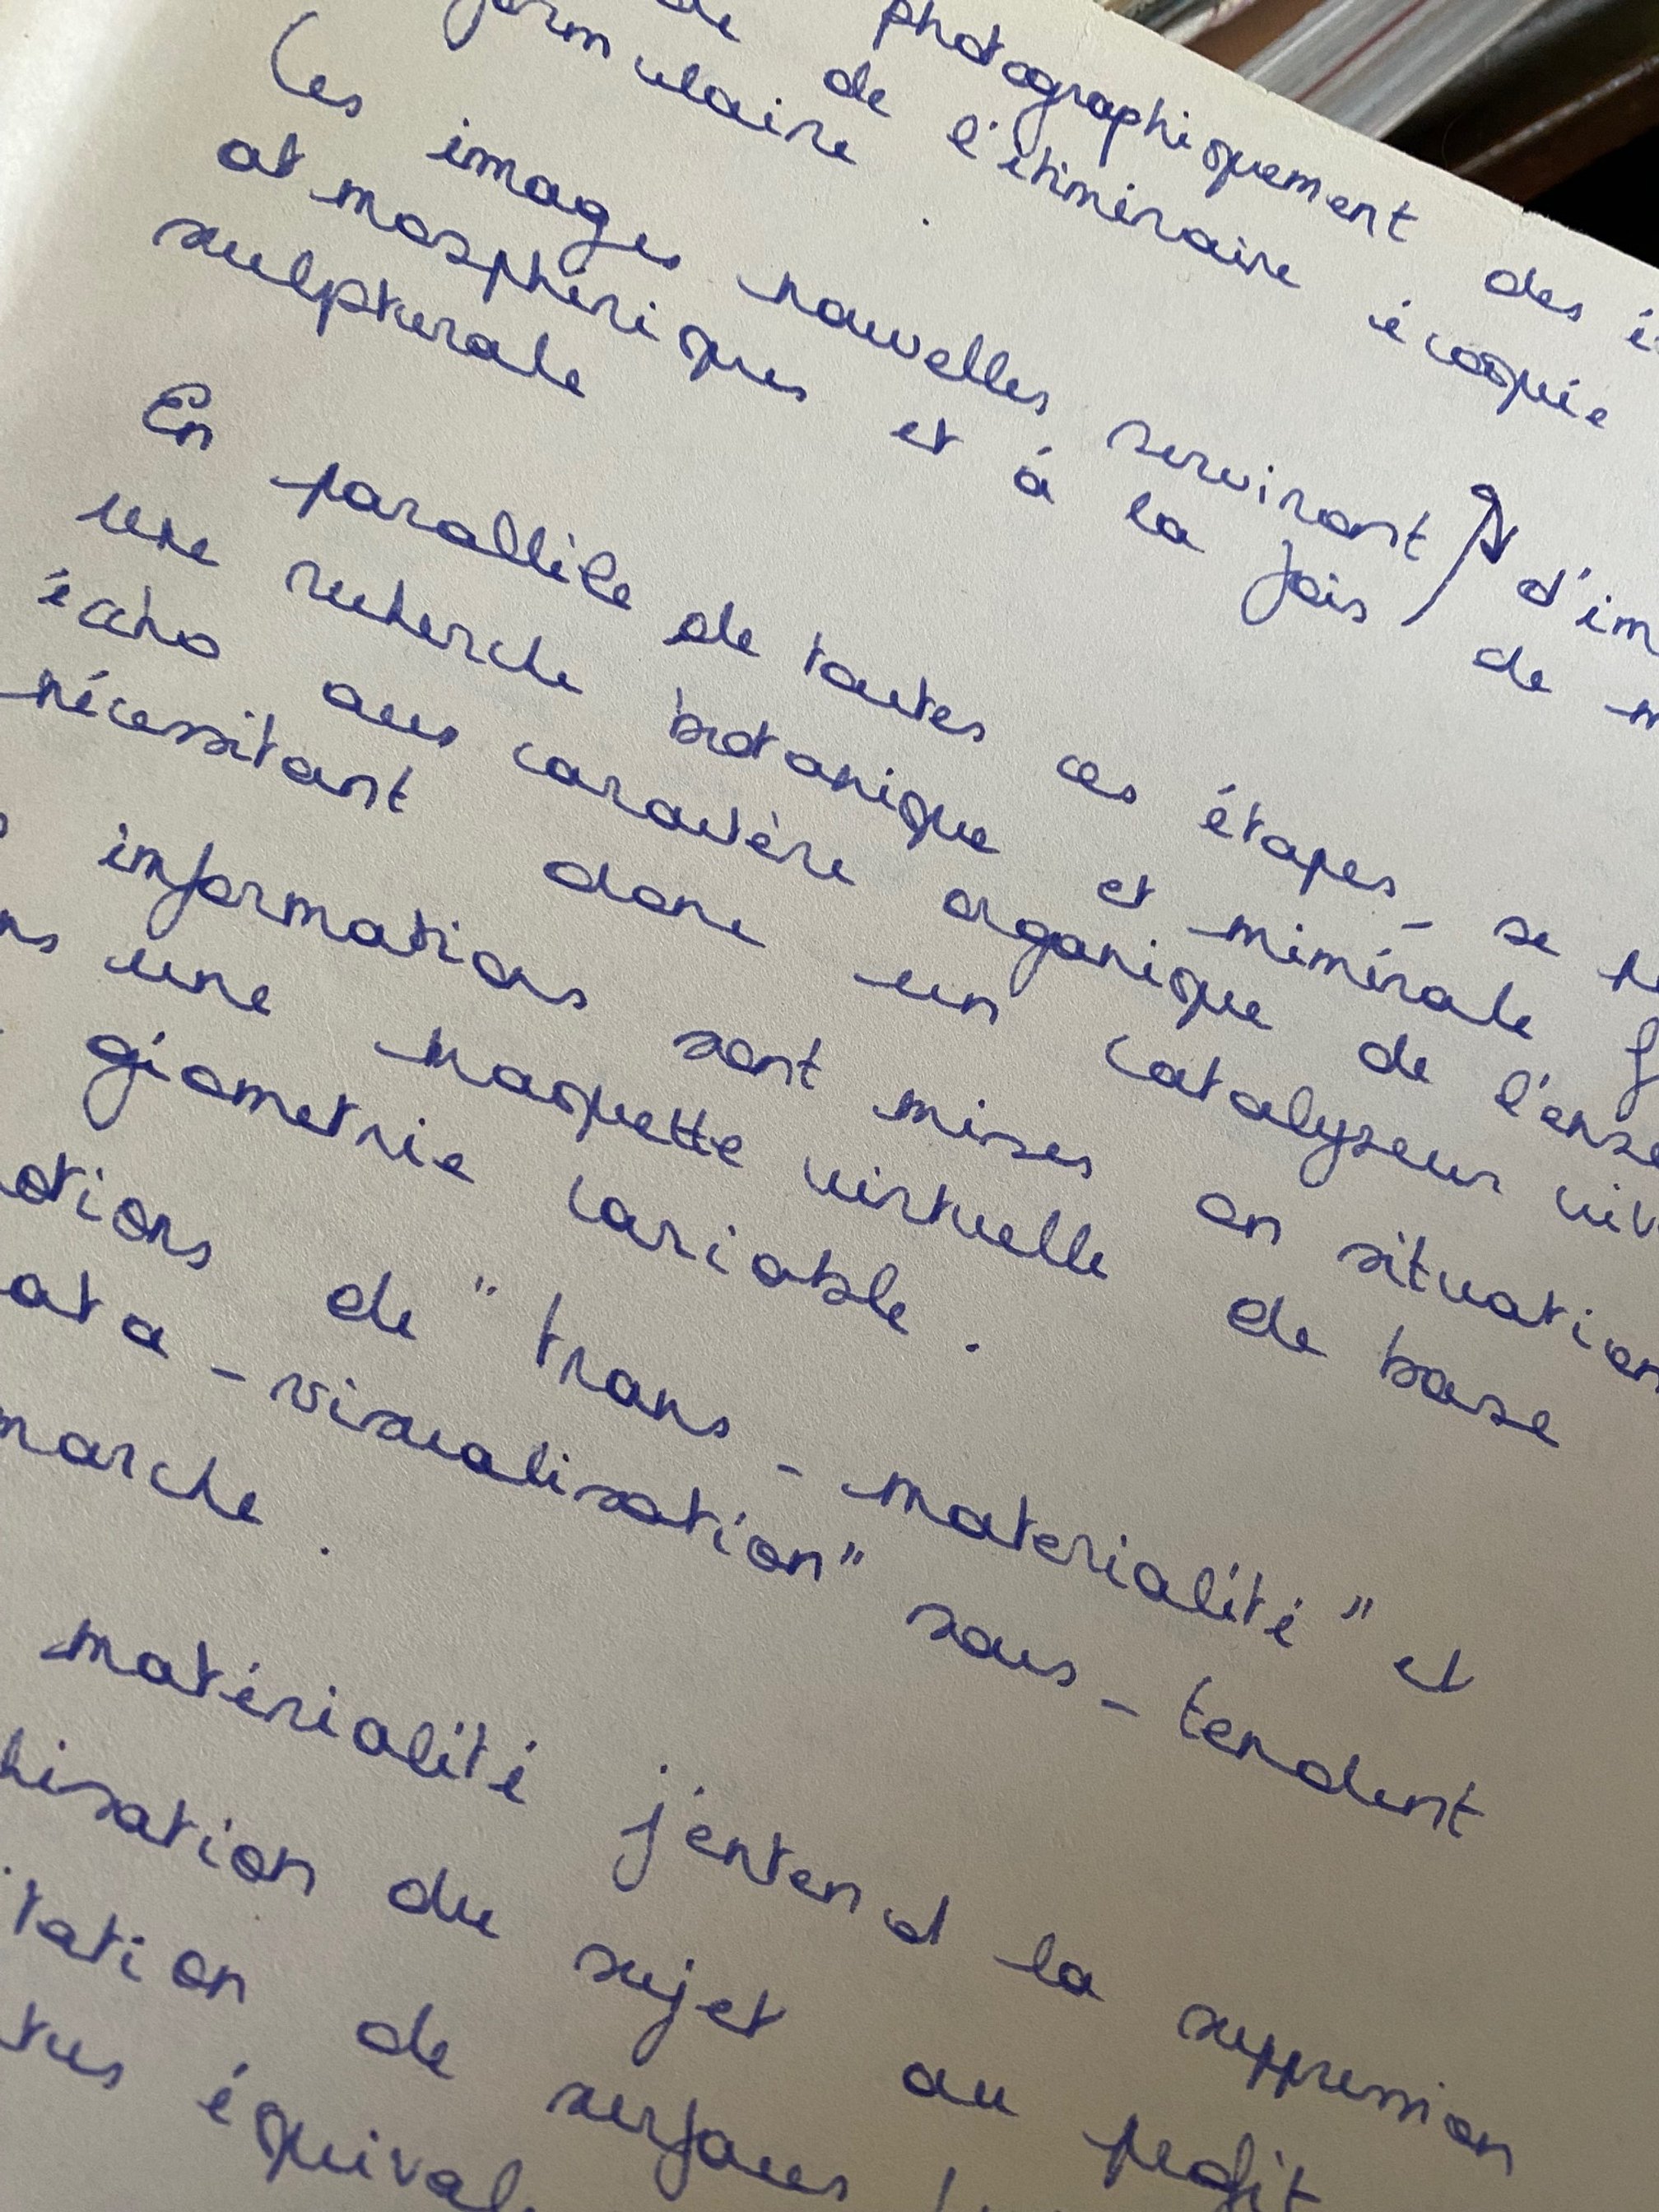 de photographiquement des é
de l'itinéraire
formulaire .
Les images nouvelles serviront d'im
atmosphériques et à la fois de m
sculpturale
En parallèle de toutes ces étapes - se
une recherche botanique et minérale f
écho aus caractère organique de l'ense
nécessitant donc un catalyseur viv
informations sont mises en situation
ns une maquette virtuelle de base
géometrie variable .
otions de " trans - materialité " et
ata - visualisation" sous - tendent
marche .
matérialité j'entend la suppression
hisation du sujet au profit
tation de surfaces
tus équival